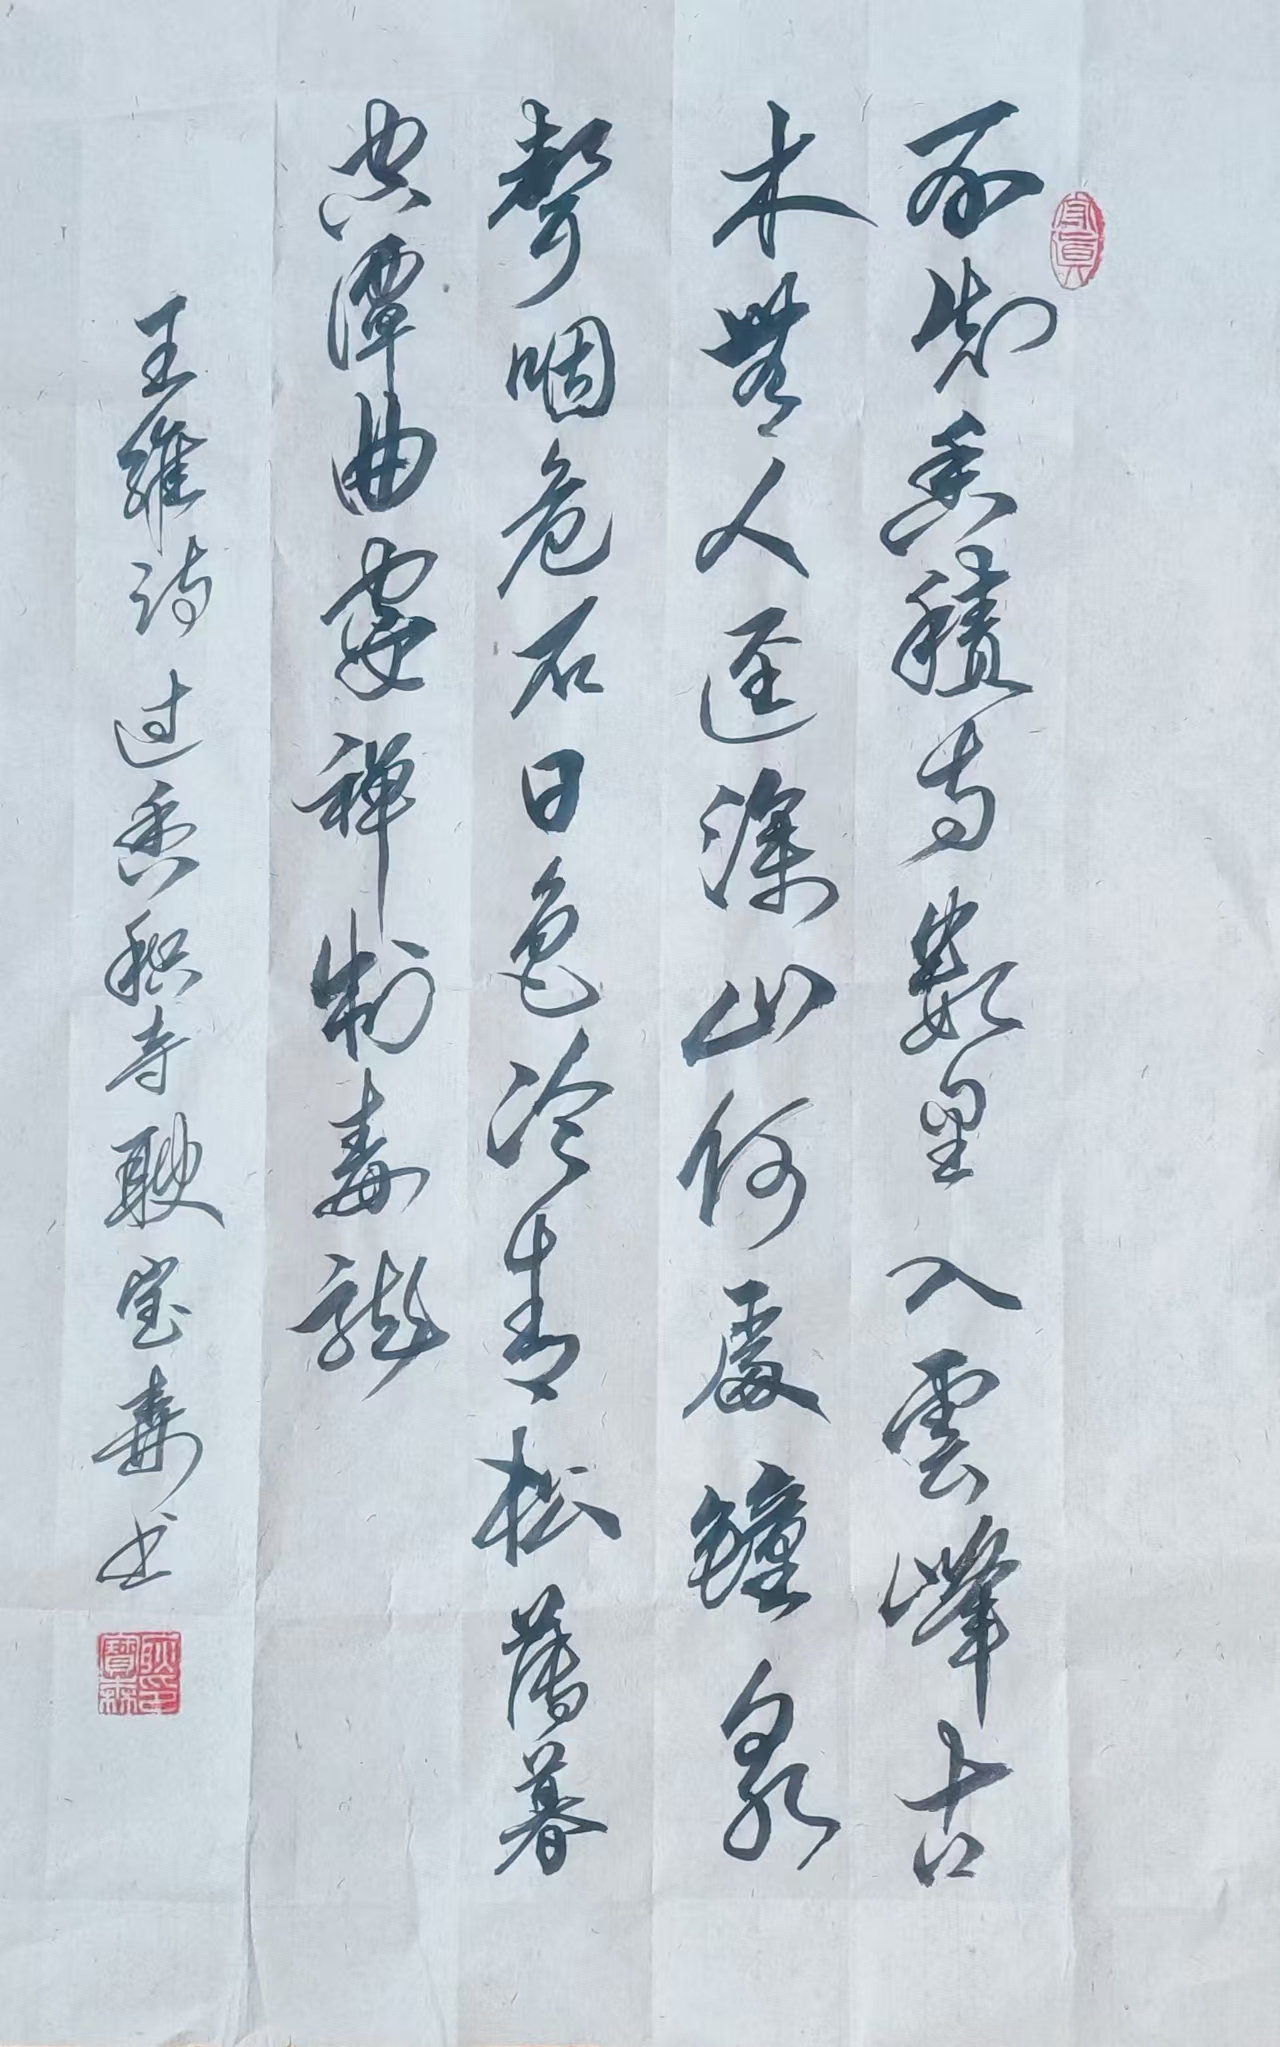 不知香積寺數里入雲峰古
木無人逕深山何處鐘泉
聲咽危石日色冷青松薄暮
空潭曲安禪制毒龍
王維诗过香积寺耿宝森书
耿印寶森